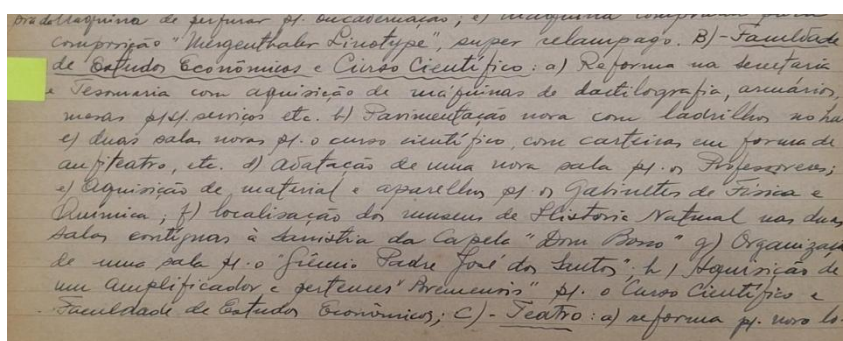 de máquina de perfurar p/. encadernação; e) máquina
composição "Mergenthaler Linotype", super relampago. B)- Faculdade
de Estudos Econômicos e Curso Científico: a) Reforma na secretaria
e Tesouraria com aquisição de máquinas de dactilografia, armários,
mesas p/ serviços etc. b) Pavimentação nova com ladrilhos no
c) duas salas novas p/. o curso cientifico, com carteiras em forma de
anfiteatro, etc. d) adatação de uma nova sala p/. os Professores;
e) Aquisição de material e aparelhos p/. os Gabinetes de Fisica e
Quimica; f) localisação dos museus de Historia Natural nas duas
salas contiguas à sanistia da Capela "Dom Bosco" g) Organização
de uma sala p/. o "Grêmio Padre José dos Santos"; h) Aquisição de
um amplificador e pertences p/. o Curso Cientifico e
Faculdade de Estudos Econômicos; C)- Teatro: a) reforma p/. novo lo-